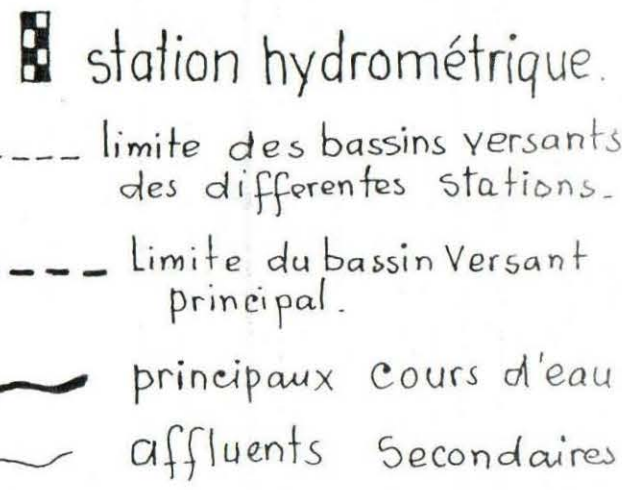 station hydrométrique.
limite des bassins versants
des differentes stations.
Limite du bassin Versant
principal.
principaux cours d'eau
affluents secondaires